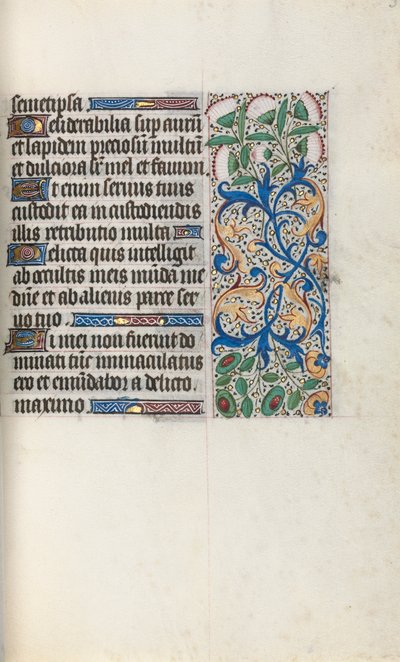 semetipsa
Desiderabilia sup aurū
et lapidem preciosum multū
et dulciora sr̄ mel et fauum
Et enim seruus tuus
custodit ea in custodiendis
illis retributio multa
Delicta quis intelligit
ab occultis meis mūda me
dn̄e et ab alienis parce ser
uo tuo
Si mei non fuerint do
minati tūc immaculatus
ero et emūdabor a delicto
maximo